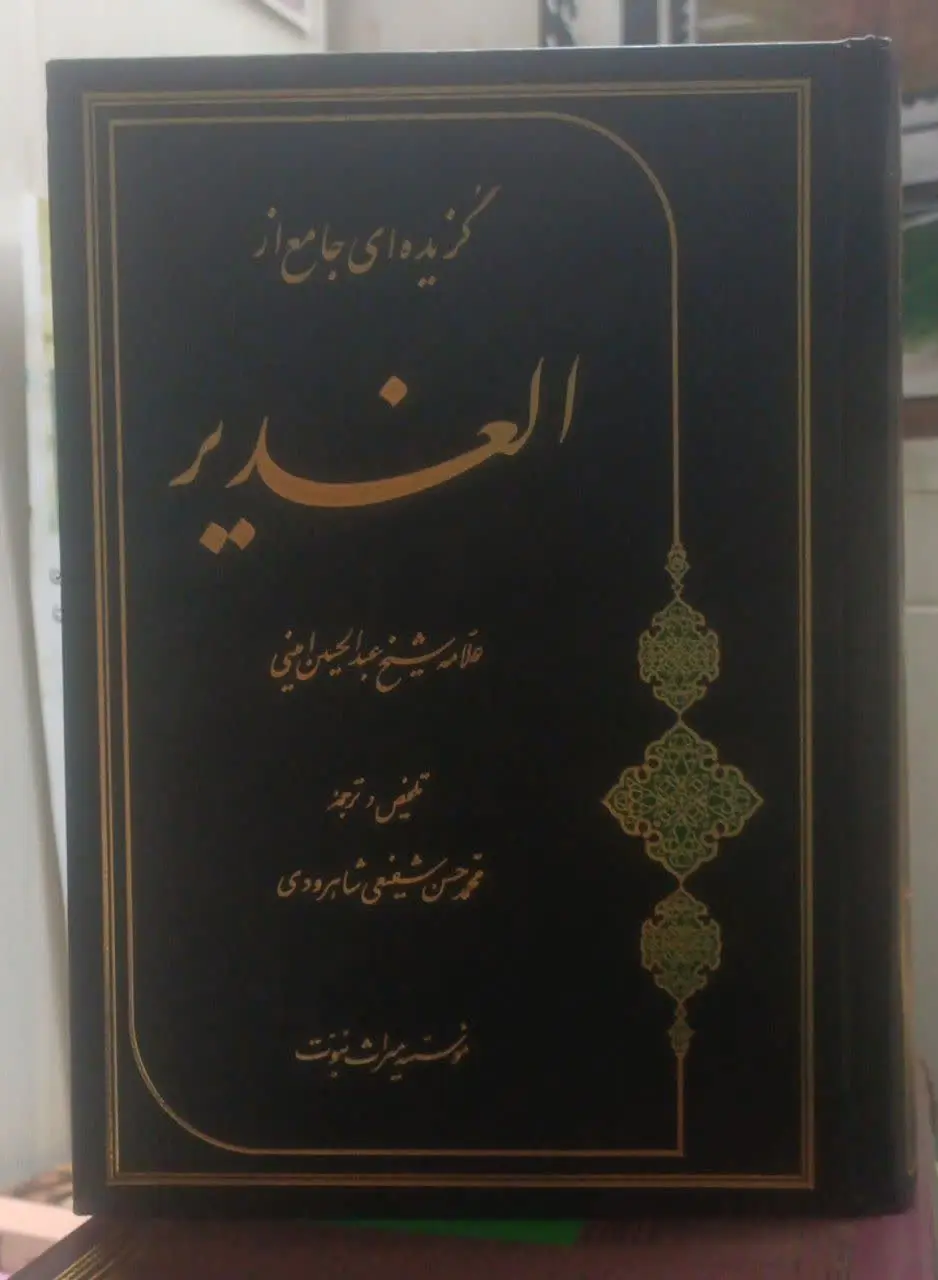 گزیده‌ای جامع از
الغدیر
علّامه شیخ عبدالحسین امینی
تلخیص و ترجمهٔ
محمّد حسن شفیعی شاهرودی
مؤسّسه میراث نبوّت